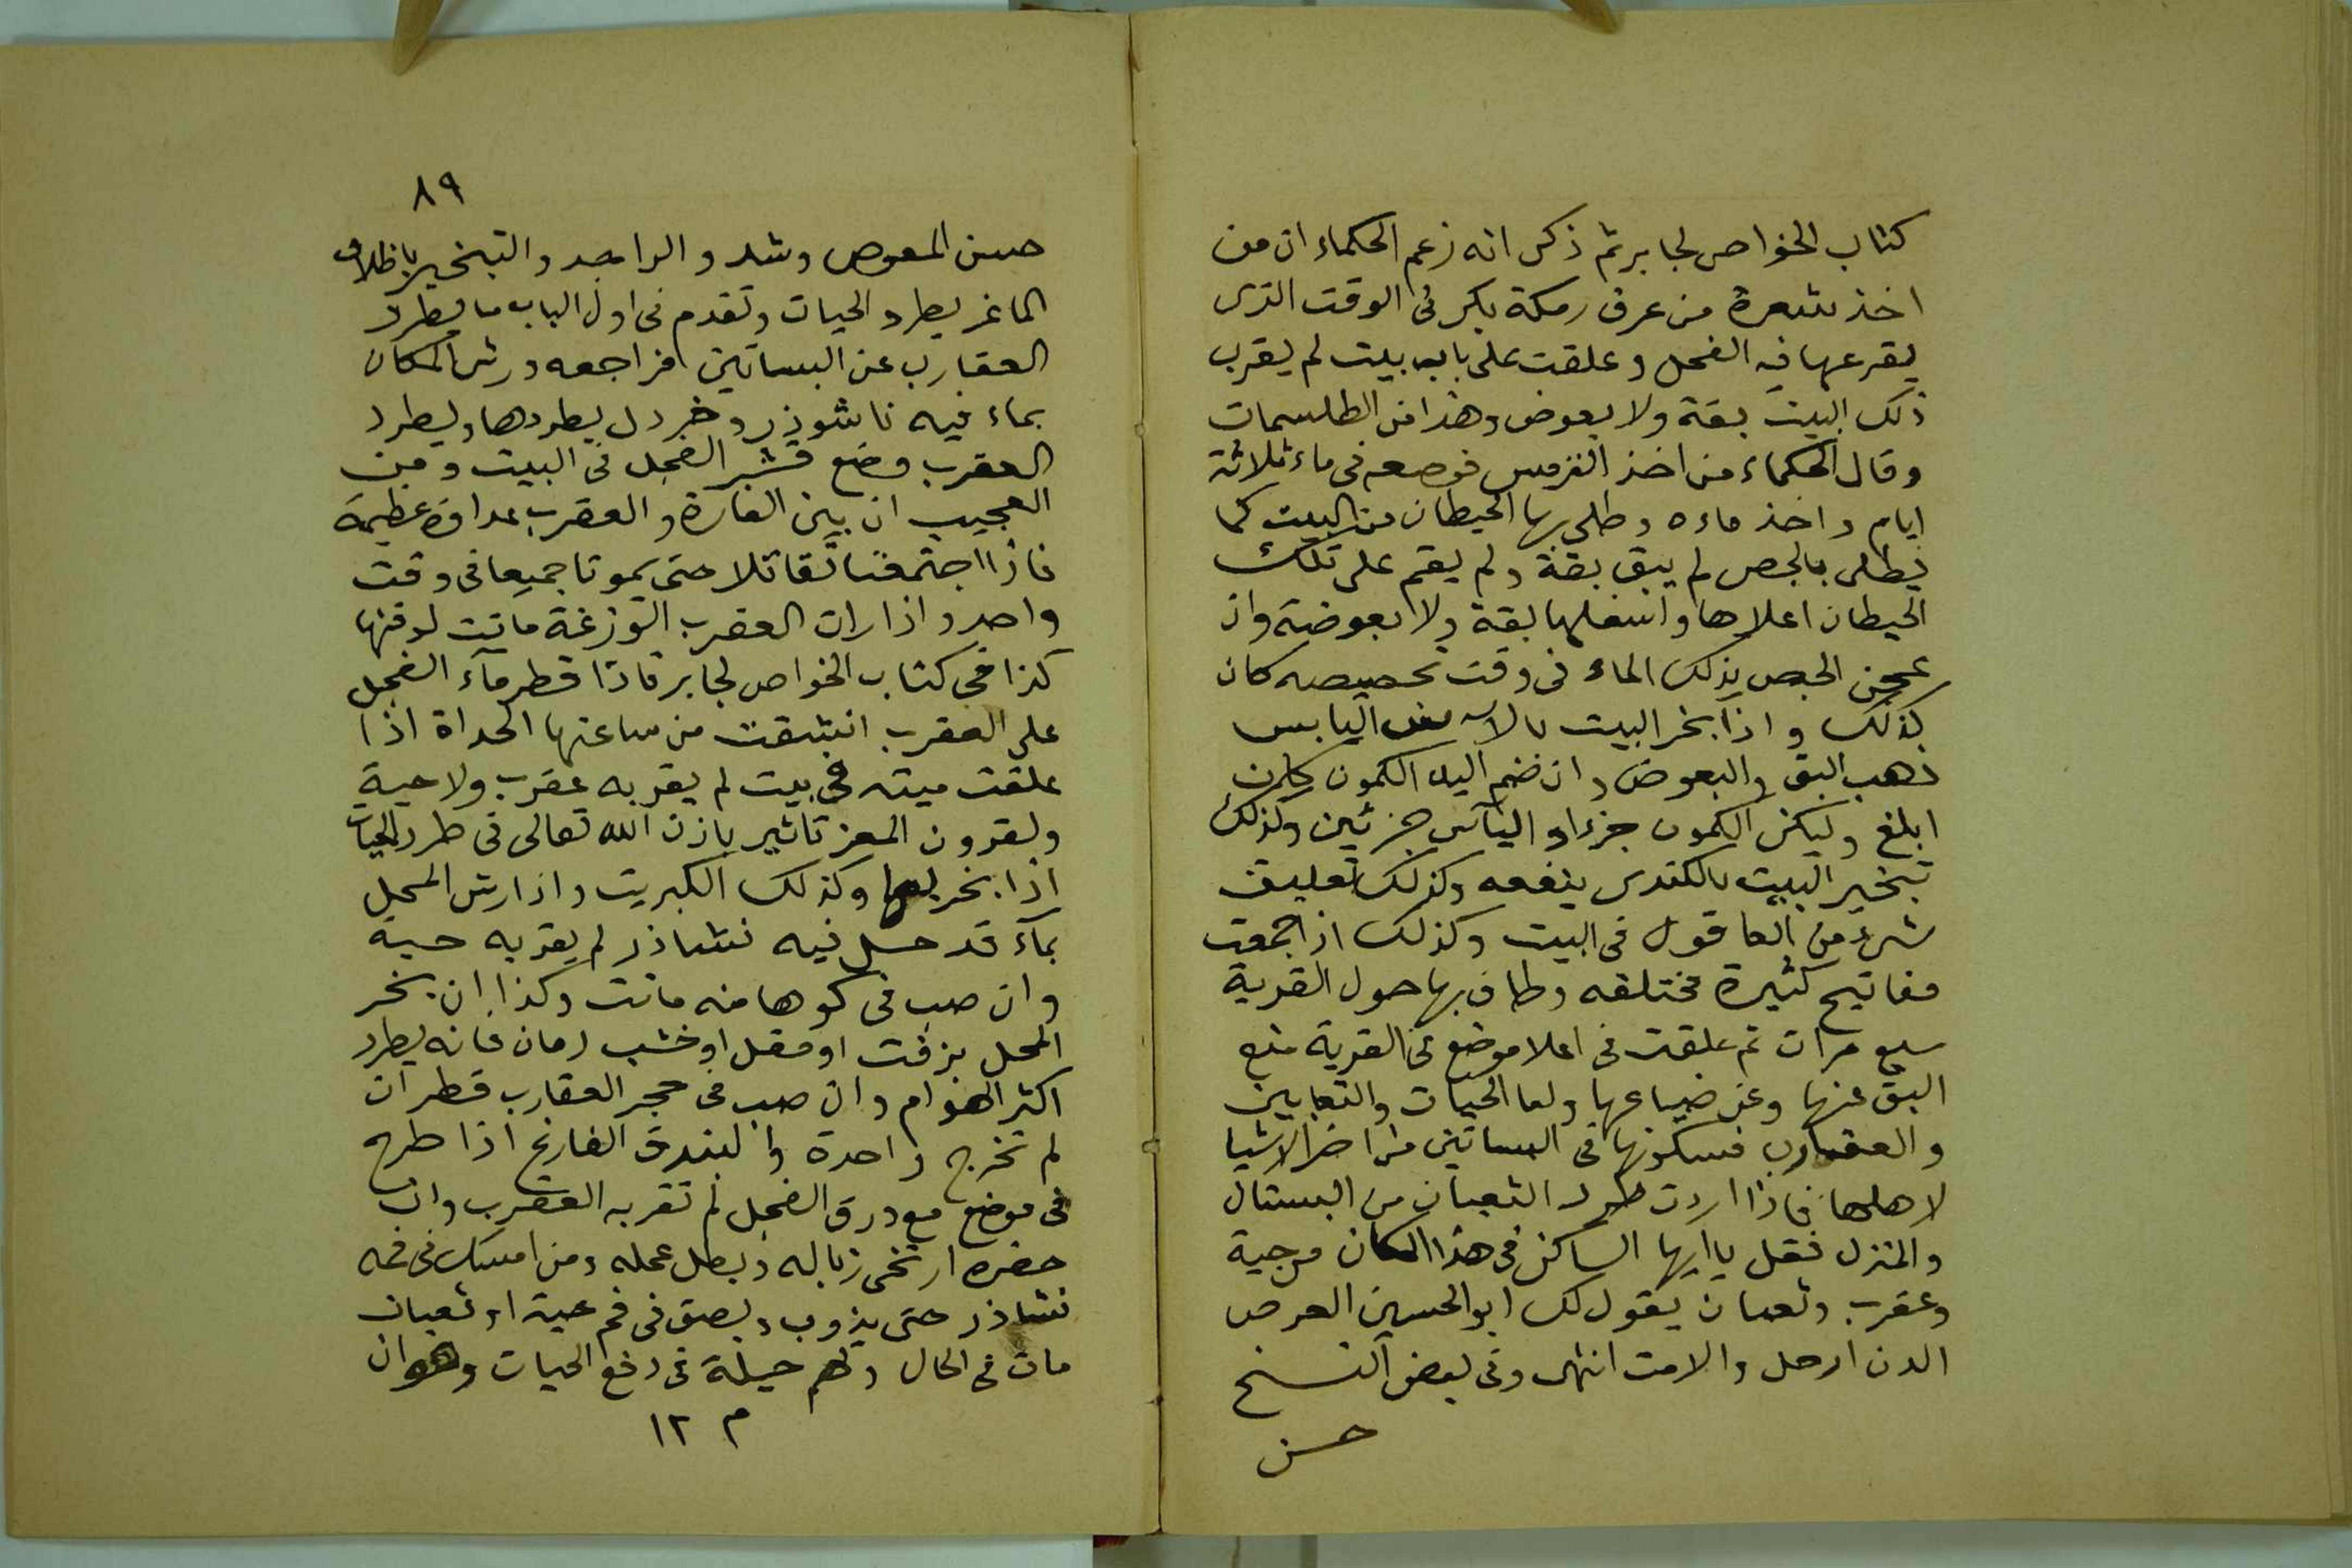 كتاب الخواص لجابر ثم ذكر انه زعم الحكماء ان من
اخذ شعرة من عرف رمكة بكر فى الوقت الذى
يقرعها فيه الفحل و علقت على باب بيت لم يقرب
ذلك البيت بقة ولا بعوض وهذا من الطلسمات
و قال الحكماء من اخذ الترمس فوضعه فى ماء ثلاثة
ايام و اخذ ماءه و طلى بها الحيطان من البيت كما
يطلى بالجص لم يبق بقة و لم يقم على تلك
الحيطان اعلاها و اسفلها بقة ولا بعوضة وان
عجن الجص بذلك الماء فى وقت تجصيصه كان
كذلك و اذا بخر البيت اليابس
ذهب البق والبعوض وان ضم اليه الكمون كان
ابلغ وليكن الكمون جزءا و الياس جزئين وكذلك
تبخير البيت بالكندس ينفعه وكذلك تعليق
شىء من العاقول فى البيت وكذلك اذا جمعت
مفاتيح كثيرة مختلفه وطاف بها حول القرية
سبع مرات ثم علقت فى اعلا موضع فى القرية منع
البق عنها وعن ضياعها واما الحيات والثعابين
و العقارب فسكونها فى البساتين من اضر الاشيا
لاهلها فاذا اردت طرد الثعبان من البستان
والمنزل فقل يا ايها الساكن فى هذا المكان من حية
وعقرب وثعبان يقول لك ابو الحسين العرص
الدن ارحل والامت انتهى وفى بعض النسخ
حسن
٨٩
حسن المعوص وشد و الراجد والتبخير باظلاف
الماعز يطرد الحيات وتقدم فى اول الباب ما يطرد
العقارب عن البساتين فراجعه ورش المكان
بماء فيه ناشوذر و خردل يطردها و يطرد
العقرب وضع قشر الفجل فى البيت و من
العجيب ان بين الفارة و العقرب عداوة عظيمة
فاذا اجتمعتا تقاتلا حتى يموتا جميعا فى وقت
واحد و اذا رات العقرب الوزغة ماتت لوقتها
كذا فى كتاب الخواص لجابر فاذا قطر مآء الفجل
على العقرب انشقت من ساعتها الحداة اذا
علقت ميتة فى بيت لم يقربه عقرب ولا حية
ولقرون المعز تاثير باذن الله تعالى فى طرد الحيات
اذا بخر بها وكذلك الكبريت و اذا رش المحل
بمآء قد حل فيه نشاذر لم يقربه حية
وان صب فى كوها منه ماتت وكذا ان بخر
المحل بزفت او مقل او خشب رمان فانه يطرد
اكثر الهوام وان صب فى حجر العقارب قطران
لم تخرج واحدة والبندق الفارغ اذا طرح
فى موضع مع ورق الفجل لم تقربه العقرب وان
حضره ارتخى زباله وبطل عمله ومن امسك فى فمه
نشاذر حتى يذوب وبصق فى فم حية او ثعبان
مات فى الحال ولهم حيلة فى دفع الحيات وهو ان
م ١٢